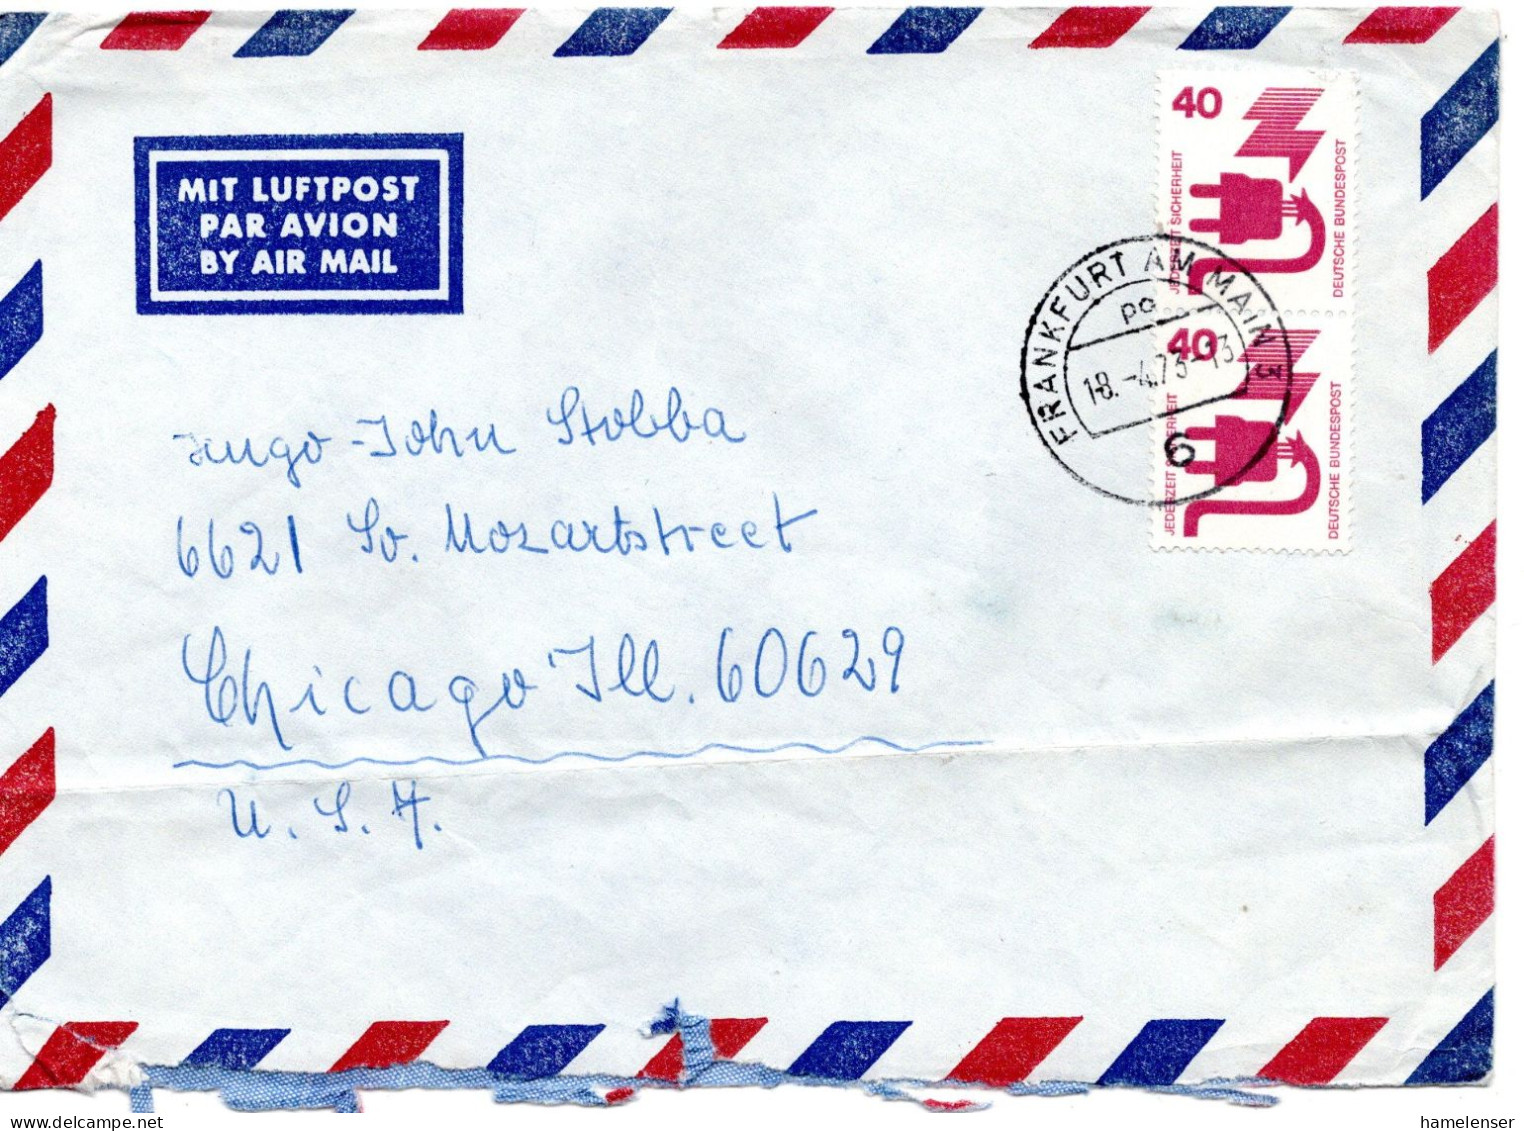 MIT LUFTPOST
PAR AVION
BY AIR MAIL
40
JEDERZEIT SICHERHEIT
DEUTSCHE BUNDESPOST
FRANKFURT AM MAIN 3
po
18.-4.73-13
6
40
JEDERZEIT SICHERHEIT
DEUTSCHE BUNDESPOST
Hugo-John Stobba
6621 So. Mozartstreet
Chicago Ill. 60629
U. S. A.
hamelenser